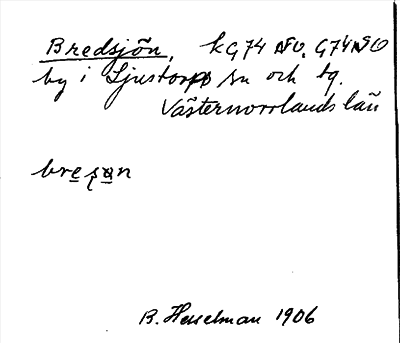 Bredsjön, kG74 NO, G74 NO
by i Ljustorps sn och tg.
Västernorrlands län
bresan
B. Hesselman 1906